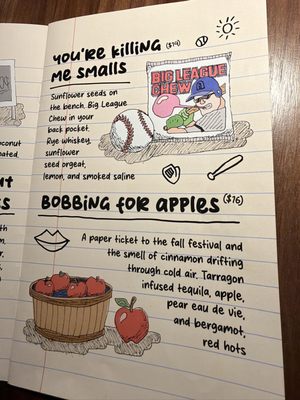 YOU'RE KILLING ($14)
ME SMALLS
Sunflower seeds on
the bench. Big League
Chew in your
back pocket.
Rye whiskey,
sunflower
seed orgeat,
lemon, and smoked saline
BIG LEAGUE
CHEW
BOBBING FOR APPLES ($16)
A paper ticket to the fall festival and
the smell of cinnamon drifting
through cold air. Tarragon
infused tequila, apple,
pear eau de vie,
and bergamot,
red hots